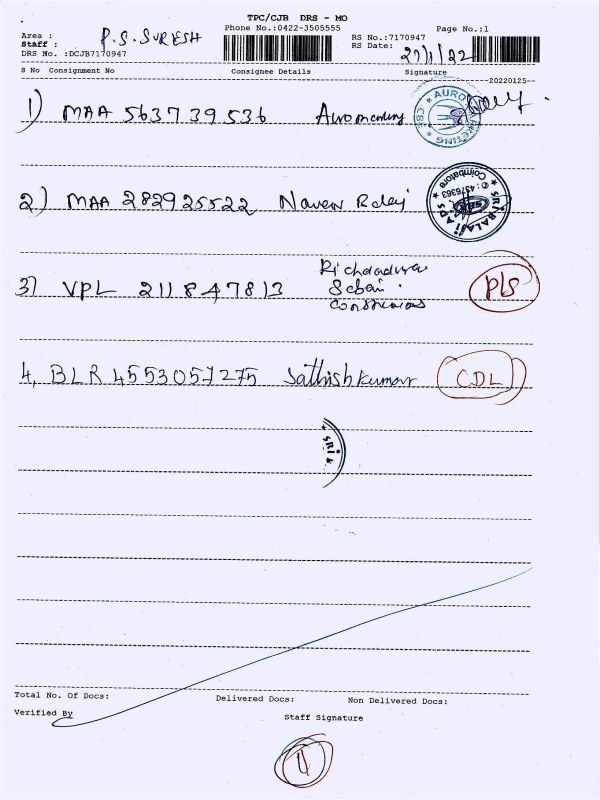 TPC/CJB DRS - MO
Phone No.:0422-3505555
Page No.:1
Area :
P.S. SURESH
RS No.:7170947
Staff :
RS Date: 27/1/22
DRS No. :DCJB7170947
S No Consignment No Consignee Details Signature
20220125
1) MAA 563739536
AURO MARKETING CBE
2) MAA 282925522 Naveen
SRI BALAJI ADS Coimbatore ✆: 4376363
3) VPL 211847813
P/S
4, BLR 4553057275 Sathishkumar CDL
SRI
Total No. Of Docs: Delivered Docs: Non Delivered Docs:
Verified By
Staff Signature